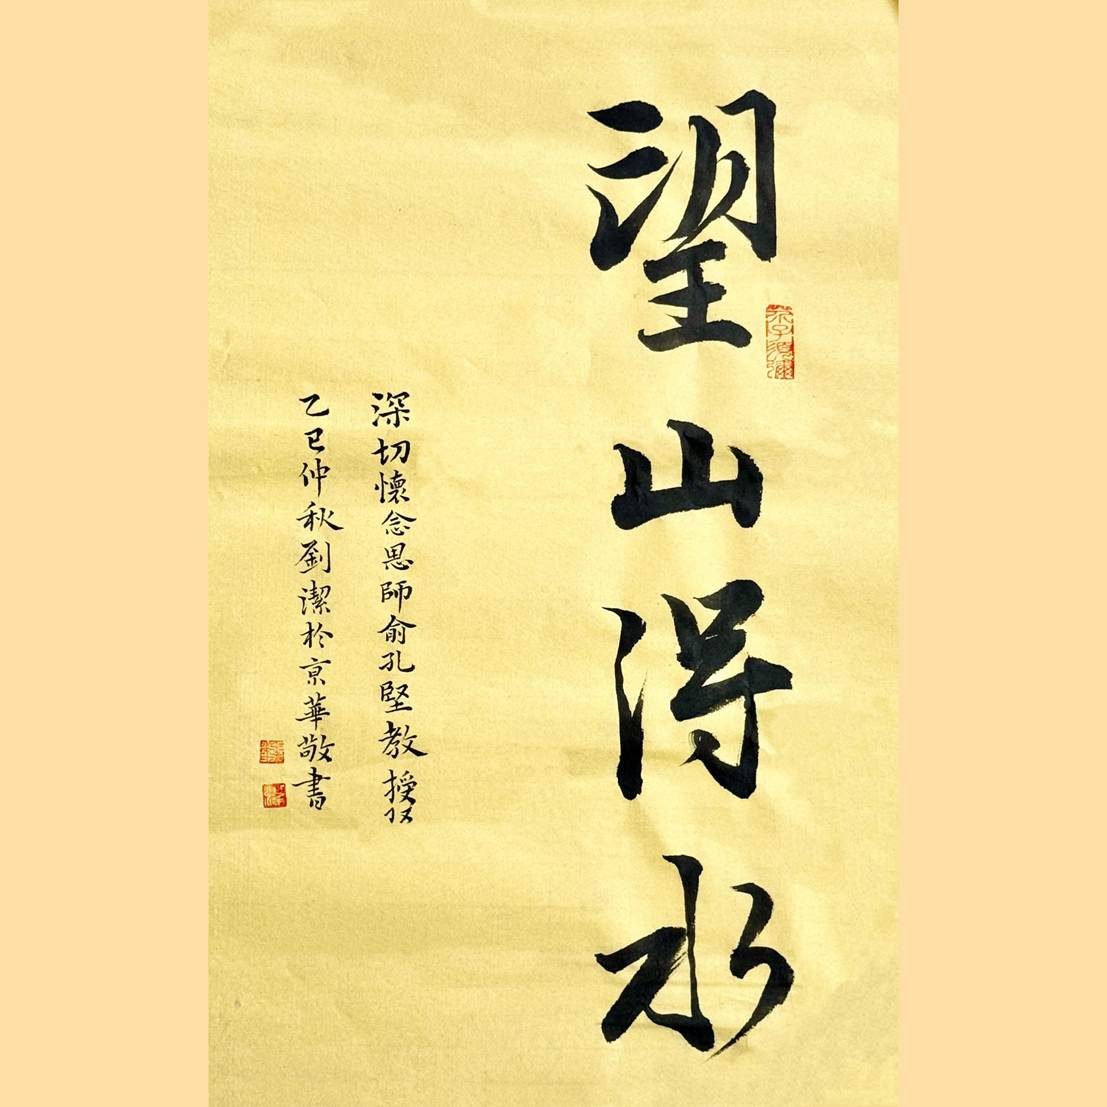 望山得水
深切懷念恩師俞孔堅教授
乙巳仲秋劉潔於京華敬書
芥子須彌